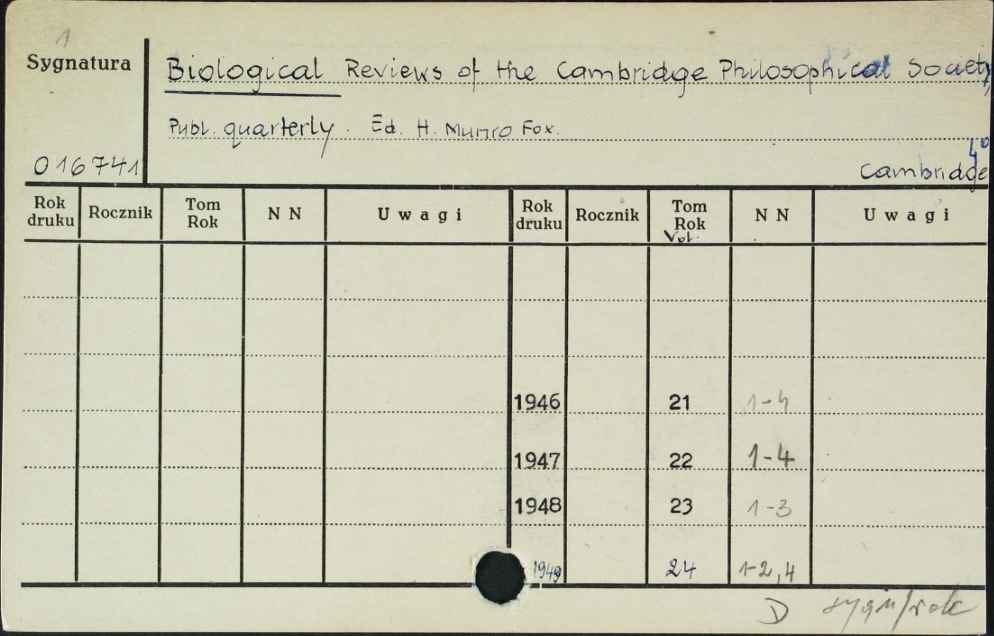 1
Sygnatura
Biological Reviews of the Cambridge Philosophical Society
Publ. quarterly. Ed. H. Munro Fox.
016741
4°
Cambridge
Rok druku Rocznik Tom Rok N N Uwagi Rok druku Rocznik Tom Rok N N Uwagi
Vol.
1946 21 1-4
1947 22 1-4
1948 23 1-3
1949 24 1-2,4
D sygn/rok